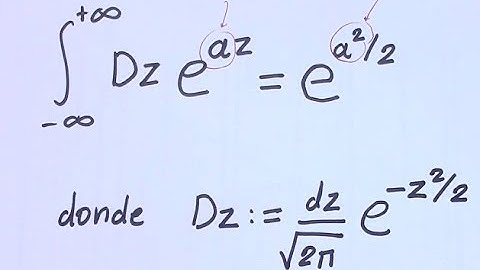 ∫_{-∞}^{+∞} Dz e^{az} = e^{a²/2}
donde Dz := dz/√2π e^{-z²/2}